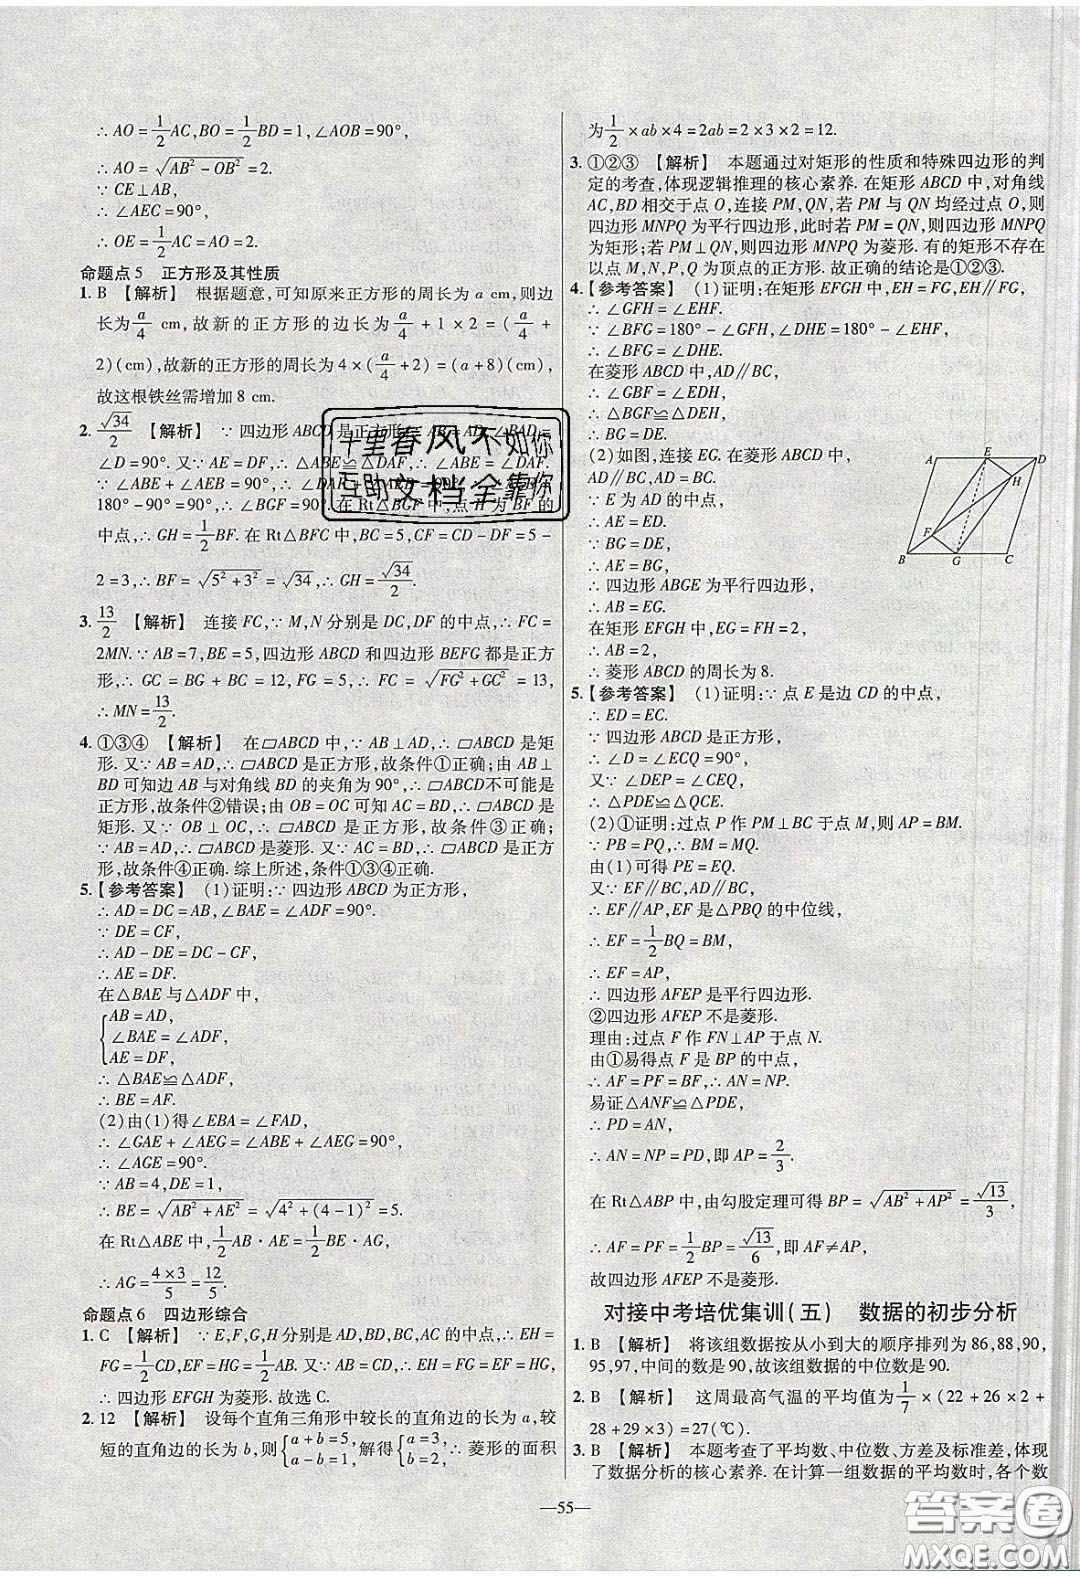 ∴ AO = 1/2 AC, BO = 1/2 BD = 1, ∠AOB = 90°,
∴ AO = √(AB² - OB²) = 2.
∵ CE⊥AB,
∴ ∠AEC = 90°,
∴ OE = 1/2 AC = AO = 2.
命题点5 正方形及其性质
1. B 【解析】 根据题意,可知原来正方形的周长为 a cm,则边
长为 a/4 cm,故新的正方形的边长为 a/4 + 1 × 2 = (a/4 +
2)(cm),故新的正方形的周长为 4 × (a/4 + 2) = (a + 8)(cm),
故这根铁丝需增加 8 cm.
2. √34/2 【解析】 ∵ 四边形 ABCD 是正方形,∴ AB = AD, ∠BAD =
∠D = 90°. 又∵ AE = DF,∴ △ABE≌△DAF,∴ ∠ABE = ∠DAF.
∵ ∠ABE + ∠BEA = 90°,∴ ∠DAF + ∠BEA = 90°,∴ ∠BGF =
180° - 90° = 90°,∴ ∠BGF = 90°. 在 Rt△BGF 中,点 H 为 BF 的
中点,∴ GH = 1/2 BF. 在 Rt△BFC 中,BC = 5,CF = CD - DF = 5 -
2 = 3,∴ BF = √(5² + 3²) = √34,∴ GH = √34/2.
3. 13/2 【解析】 连接 FC,∵ M,N 分别是 DC,DF 的中点,∴ FC =
2MN. ∵ AB = 7,BE = 5,四边形 ABCD 和四边形 BEFG 都是正方
形,∴ GC = BG + BC = 12,FG = 5,∴ FC = √(FG² + GC²) = 13,
∴ MN = 13/2.
4. ①③④ 【解析】 在▱ABCD 中,∵ AB⊥AD,∴ ▱ABCD 是矩
形. 又∵ AB = AD,∴ ▱ABCD 是正方形,故条件①正确;由 AB⊥
BD 可知边 AB 与对角线 BD 的夹角为 90°,∴ ▱ABCD 不可能是
正方形,故条件②错误;由 OB = OC 可知 AC = BD,∴ ▱ABCD 是
矩形. 又∵ OB⊥OC,∴ ▱ABCD 是正方形,故条件③正确;
∵ AB = AD,∴ ▱ABCD 是菱形. 又∵ AC = BD,∴ ▱ABCD 是正
方形,故条件④正确. 综上所述,条件①③④正确.
5. 【参考答案】 (1)证明:∵ 四边形 ABCD 为正方形,
∴ AD = DC = AB,∠BAE = ∠ADF = 90°.
∵ DE = CF,
∴ AD - DE = DC - CF,
∴ AE = DF.
在△BAE 与△ADF 中,
{AB = AD,
∠BAE = ∠ADF,
AE = DF,
∴ △BAE≌△ADF,
∴ BE = AF.
(2)由(1)得∠EBA = ∠FAD,
∴ ∠GAE + ∠AEG = ∠ABE + ∠AEG = 90°,
∴ ∠AGE = 90°.
∵ AB = 4,DE = 1,
∴ BE = √(AB² + AE²) = √(4² + (4 - 1)²) = 5.
在 Rt△ABE 中,1/2 AB · AE = 1/2 BE · AG,
∴ AG = (4 × 3)/5 = 12/5.
命题点6 四边形综合
1. C 【解析】 ∵ E,F,G,H 分别是 BD,BC,AC,AD 的中点,∴ EH =
FG = 1/2 CD,EF = HG = 1/2 AB. ∵ AB = CD,∴ EH = FG = EF = HG,
∴ 四边形 EFGH 为菱形. 故选 C.
2. 12 【解析】 设每个直角三角形中较长的直角边的长为 a,较
短的直角边的长为 b,则{a + b = 5, a - b = 1, 解得{a = 3, b = 2, ∴ 菱形的面积
为 1/2 × ab × 4 = 2ab = 2 × 3 × 2 = 12.
3. ①②③ 【解析】 本题通过对矩形的性质和特殊四边形的判
定的考查,体现逻辑推理的核心素养. 在矩形 ABCD 中,对角线
AC,BD 相交于点 O,连接 PM,QN,若 PM 与 QN 均经过点 O,则
四边形 MNPQ 为平行四边形,此时若 PM = QN,则四边形 MNPQ
为矩形;若 PM⊥QN,则四边形 MNPQ 为菱形. 有的矩形不存在
以点 M,N,P,Q 为顶点的正方形. 故正确的结论是①②③.
4. 【参考答案】 (1)证明:在矩形 EFGH 中,EH = FG,EH∥FG,
∴ ∠GFH = ∠EHF.
∵ ∠BFG = 180° - ∠GFH,∠DHE = 180° - ∠EHF,
∴ ∠BFG = ∠DHE.
在菱形 ABCD 中,AD∥BC,
∴ ∠GBF = ∠EDH,
∴ △BGF≌△DEH,
∴ BG = DE.
(2)如图,连接 EG. 在菱形 ABCD 中,
AD∥BC,AD = BC.
∵ E 为 AD 的中点,
∴ AE = ED.
∵ BG = DE,
∴ AE = BG,
∴ 四边形 ABGE 为平行四边形,
∴ AB = EG.
在矩形 EFGH 中,EG = FH = 2,
∴ AB = 2,
∴ 菱形 ABCD 的周长为 8.
A E D
H
F
B G C
5. 【参考答案】 (1)证明:∵ 点 E 是边 CD 的中点,
∴ ED = EC.
∵ 四边形 ABCD 是正方形,
∴ ∠D = ∠ECQ = 90°.
又∵ ∠DEP = ∠CEQ,
∴ △PDE≌△QCE.
(2)①证明:过点 P 作 PM⊥BC 于点 M,则 AP = BM.
∵ PB = PQ,∴ BM = MQ.
由(1)可得 PE = EQ.
又∵ EF∥BC,AD∥BC,
∴ EF∥AP,EF 是△PBQ 的中位线,
∴ EF = 1/2 BQ = BM,
∴ EF = AP,
∴ 四边形 AFEP 是平行四边形.
②四边形 AFEP 不是菱形.
理由:过点 F 作 FN⊥AP 于点 N.
由①易得点 F 是 BP 的中点,
∴ AF = PF = BF,∴ AN = NP.
易证△ANF≌△PDE,
∴ PD = AN,
∴ AN = NP = PD,即 AP = 2/3.
在 Rt△ABP 中,由勾股定理可得 BP = √(AB² + AP²) = √13/3,
∴ AF = PF = 1/2 BP = √13/6,即 AF≠AP,
故四边形 AFEP 不是菱形.
对接中考培优集训(五) 数据的初步分析
1. B 【解析】 将该组数据按从小到大的顺序排列为 86,88,90,
95,97,中间的数是 90,故该组数据的中位数是 90.
2. B 【解析】 这周最高气温的平均值为 1/7 × (22 + 26 × 2 +
28 + 29 × 3) = 27(℃).
3. B 【解析】 本题考查了平均数、中位数、方差及标准差,体现
了数据分析的核心素养. 在计算一组数据的平均数时,各个数
—55—
十里春风不如你
互助文档全靠你
答案圈
MXQE.COM